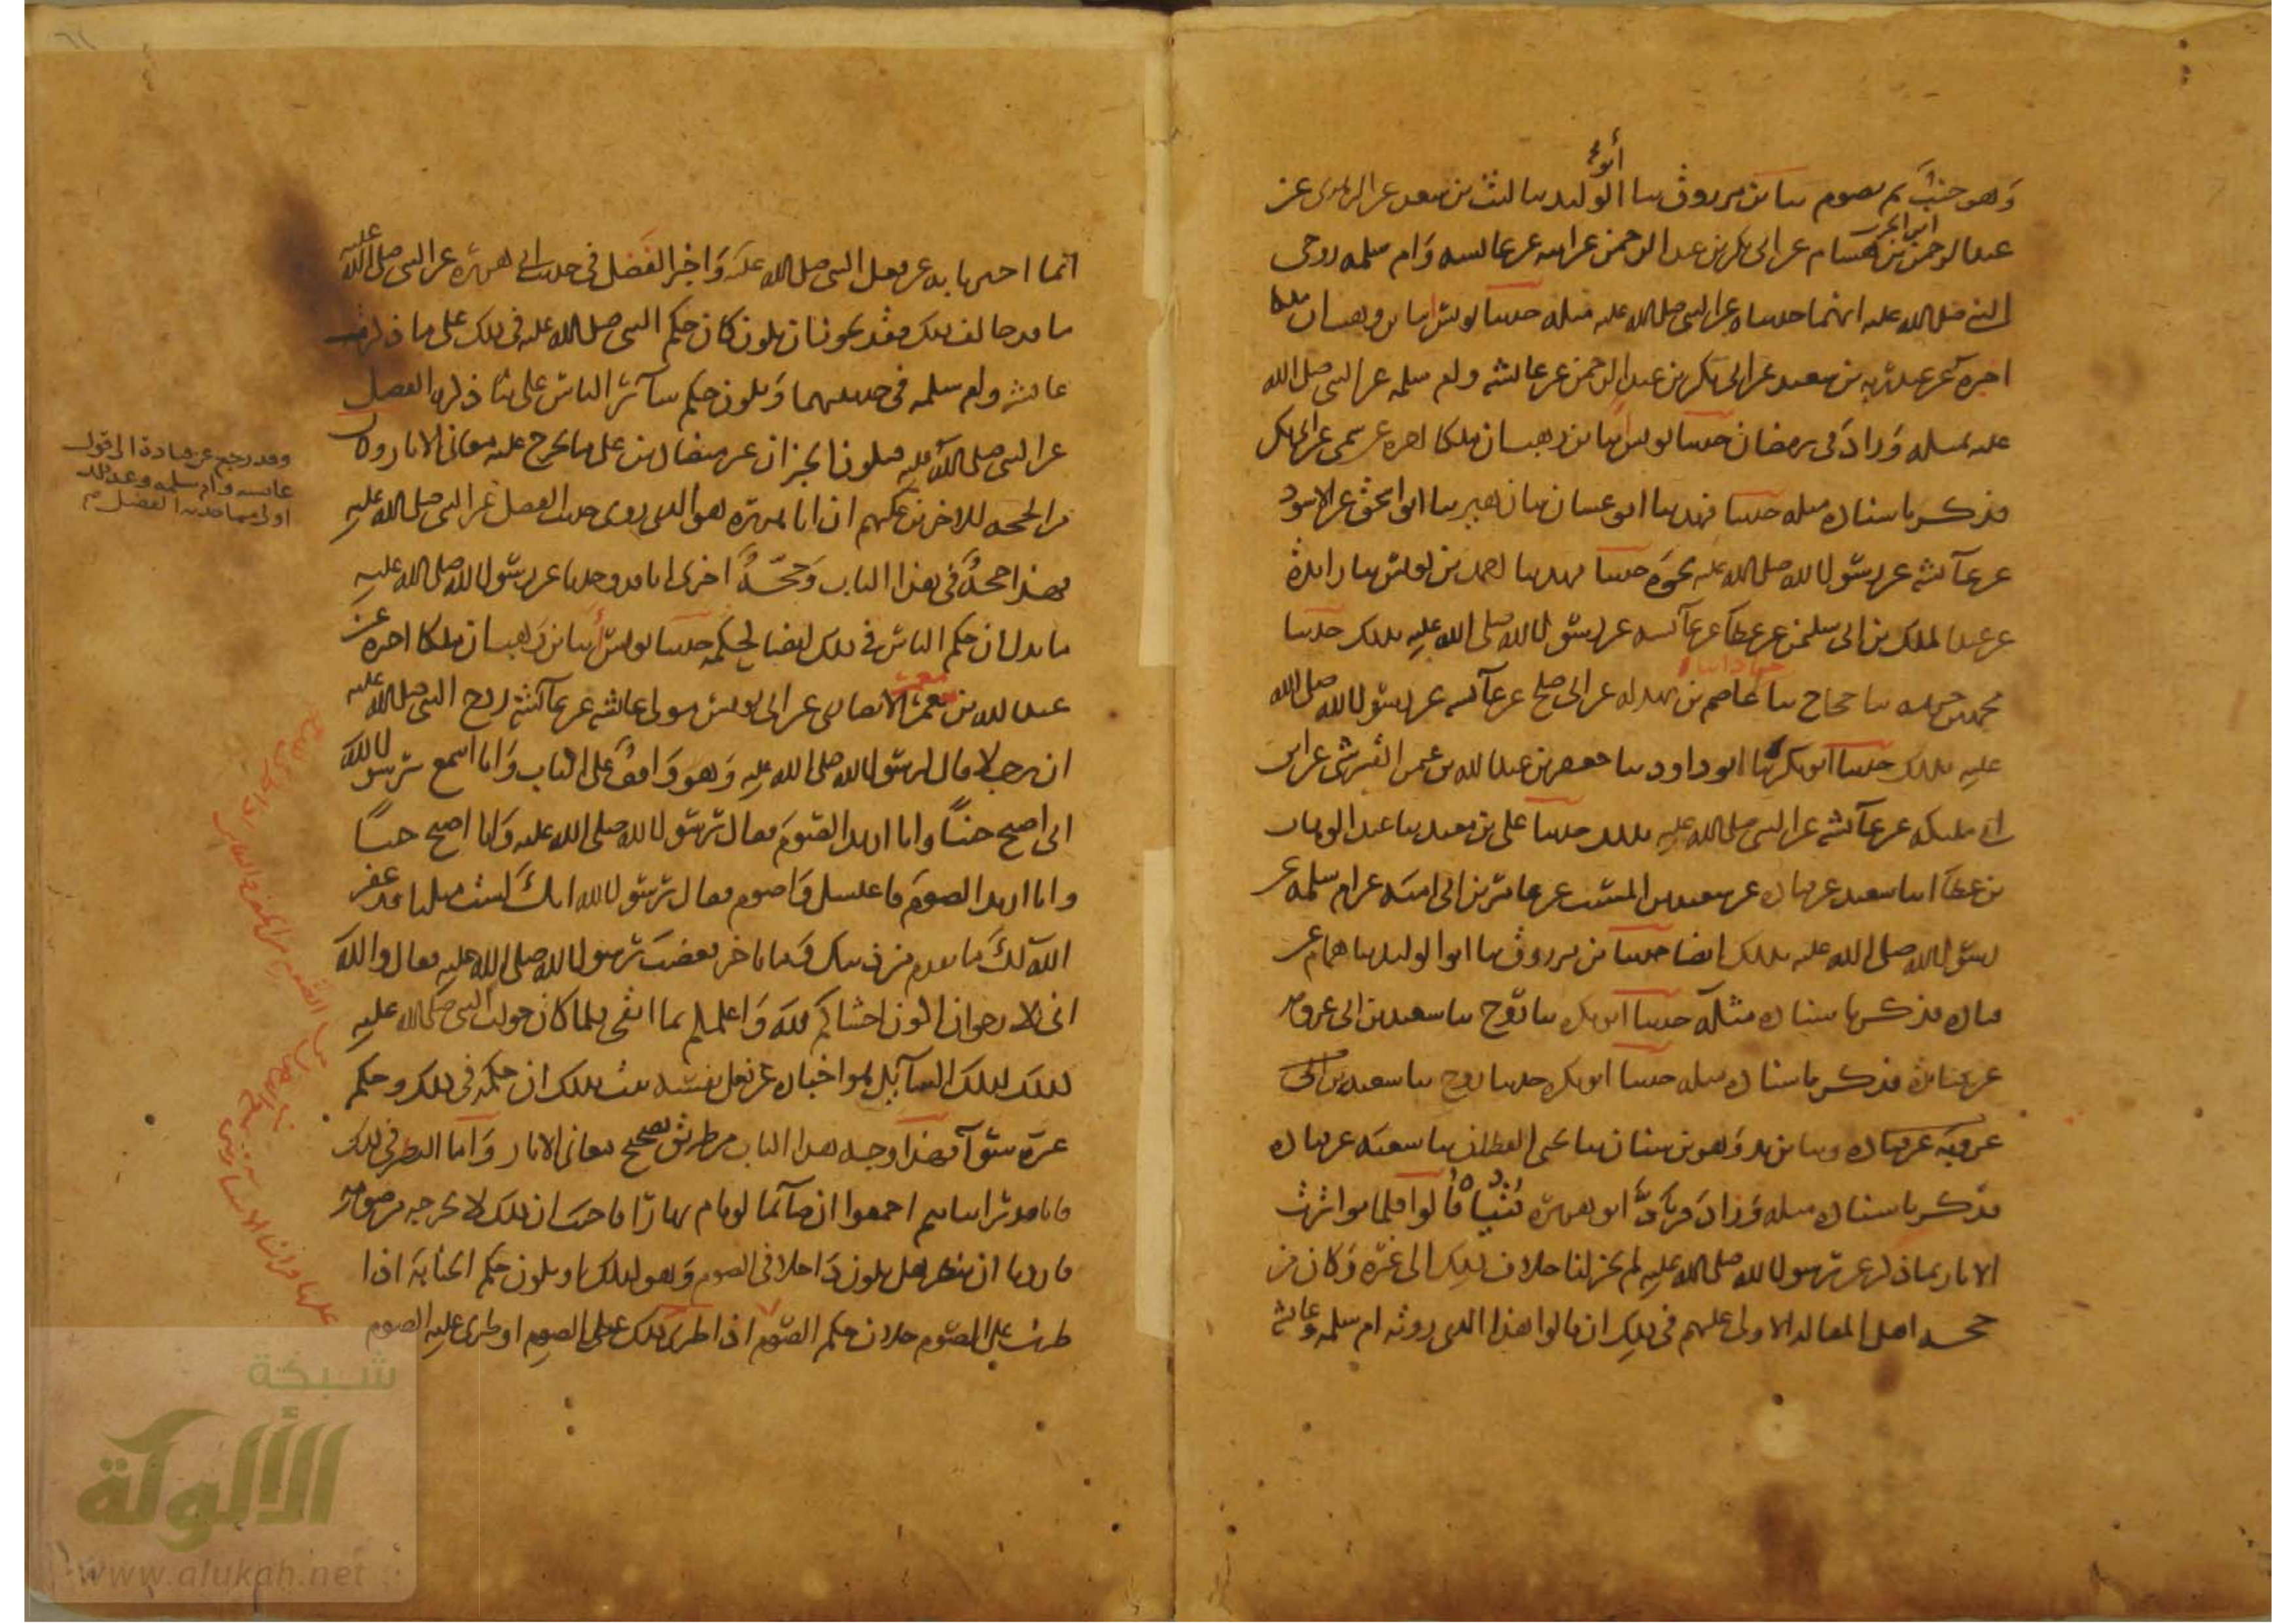 وهو جنب ثم يصوم ثنا ابن مرزوق ثنا أبو الوليد ثنا ليث بن سعد عن الزهري عن
عبد الرحمن بن هشام عن أبي بكر بن عبد الرحمن عن أبيه عن عائشة وأم سلمة زوجي
النبي صلى الله عليه أنهما حدثتاه عن النبي صلى الله عليه مثله حدثنا يونس أنا ابن وهب أن مالكا
أخبره عن عبد ربه بن سعيد عن أبي بكر بن عبد الرحمن عن عائشة وأم سلمة عن النبي صلى الله
عليه بمثله وزاد في رمضان حدثنا يونس أنا ابن وهب أن مالكا أخبره عن سمي عن أبي بكر
فذكر بإسناده مثله حدثنا فهد ثنا أبو غسان ثنا زهير ثنا أبو إسحق عن الأسود
عن عائشة عن رسول الله صلى الله عليه نحوه حدثنا فهد ثنا أحمد بن يونس ثنا زائدة
عن عبد الملك بن أبي سليمن عن عطاء عن عائشة عن رسول الله صلى الله عليه بذلك حدثنا
محمد بن خزيمة ثنا حجاج ثنا عاصم بن بهدلة عن أبي صالح عن عائشة عن رسول الله صلى الله
عليه بذلك حدثنا أبو بكرة ثنا أبو داود ثنا جعفر بن عبد الله بن عمر القرشي عن ابن
أبي مليكة عن عائشة عن النبي صلى الله عليه بذلك حدثنا علي بن معبد ثنا عبد الوهاب
بن عطاء أنا سعيد عن قتادة عن سعيد بن المسيب عن عامر بن أبي أمية عن أم سلمة عن
رسول الله صلى الله عليه بذلك أيضا حدثنا ابن مرزوق ثنا أبو الوليد ثنا همام عن
قتادة فذكر بإسناده مثله حدثنا أبو بكرة ثنا روح ثنا سعيد بن أبي عروبة
عن قتادة فذكر بإسناده مثله حدثنا أبو بكرة حدثنا روح ثنا سعيد بن أبي
عروبة عن قتادة وثنا يزيد وهو بن سنان ثنا يحيى القطان ثنا سعيد عن قتادة
فذكر بإسناده مثله وزاد فرد أبو هريرة فتياه قالوا فلما تواترت
الآثار بما ذكر عن رسول الله صلى الله عليه لم يجز لنا خلاف ذلك إلى غيره وكان من
حجة أهل المقالة الأولى عليهم في ذلك أن قالوا هذا الذي روته أم سلمة وعائشة
إنما أخبرتا به عن فعل النبي صلى الله عليه وأخبر الفضل في حديث أبي هريرة عن النبي صلى الله عليه
ما قد خالف ذلك فقد يجوز أن يكون كان حكم النبي صلى الله عليه في ذلك على ما ذكرت
عائشة وأم سلمة في حديثهما ويكون حكم سائر الناس على ما ذكره الفضل
عن النبي صلى الله عليه فيكون الخبران غير متضادين على ما يخرج عليه معاني الآثار وكان
من الحجة للآخرين عليهم أن أبا هريرة هو الذي روى حديث الفضل عن النبي صلى الله عليه
فهذا حجة في هذا الباب وحجة أخرى أنا قد وجدنا عن رسول الله صلى الله عليه
ما يدل أن حكم الناس في ذلك أيضا كحكمه حدثنا يونس أنا ابن وهب أن مالكا أخبره عن
عبد الله بن معمر الأنصاري عن أبي يونس مولى عائشة عن عائشة زوج النبي صلى الله عليه
أن رجلا قال لرسول الله صلى الله عليه وهو واقف على الباب وأنا أسمع يا رسول الله
إني أصبح جنبا وأنا أريد الصوم فقال رسول الله صلى الله عليه وأنا أصبح جنبا
وأنا أريد الصوم فأغتسل وأصوم فقال يا رسول الله إنك لست مثلنا قد غفر
الله لك ما تقدم من ذنبك وما تأخر فغضب رسول الله صلى الله عليه فقال والله
إني لأرجو أن أكون أخشاكم لله وأعلمكم بما أتقي فلما كان جواب النبي صلى الله عليه
لذلك السائل هو إخباره عن فعل نفسه ثبت بذلك أن حكمه في ذلك وحكم
غيره سواء فهذا وجه هذا الباب من طريق تصحيح معاني الآثار وأما النظر في ذلك
فإنا قد رأيناهم أجمعوا أن صائما لو نام نهارا فأجنب أن ذلك لا يخرجه من صومه
فأردنا أن ننظر هل يكون داخلا في الصوم وهو كذلك أو يكون حكم الجنابة إذا
طرت على الصوم خلاف حكم الصوم إذا طرى ذلك على الصوم أو طرى عليه الصوم
وقد رجع عن قتادة إلى قول
عائشة وأم سلمة وعد ذلك
أولى مما حدثه الفضل
شبكة
الألوكة
www.alukah.net